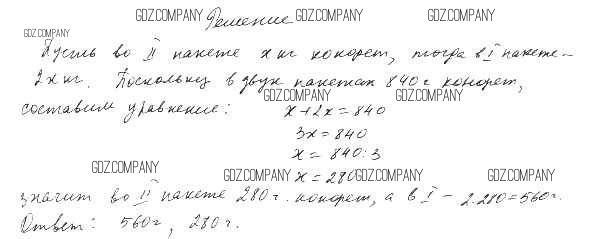 GDZ.COMPANY GDZ.COMPANY GDZ.COMPANY
Решение
GDZ.COMPANY
Пусть во II пакете х кг конфет, тогда в I пакете –
2х кг. Поскольку в двух пакетах 840 г конфет,
GDZ.COMPANY GDZ.COMPANY
составим уравнение: х+2х=840
3х=840
х=840:3
GDZ.COMPANY GDZ.COMPANY GDZ.COMPANY GDZ.COMPANY
х=280
значит во II пакете 280 г. конфет, а в I – 2·280=560г.
Ответ: 560г, 280г.